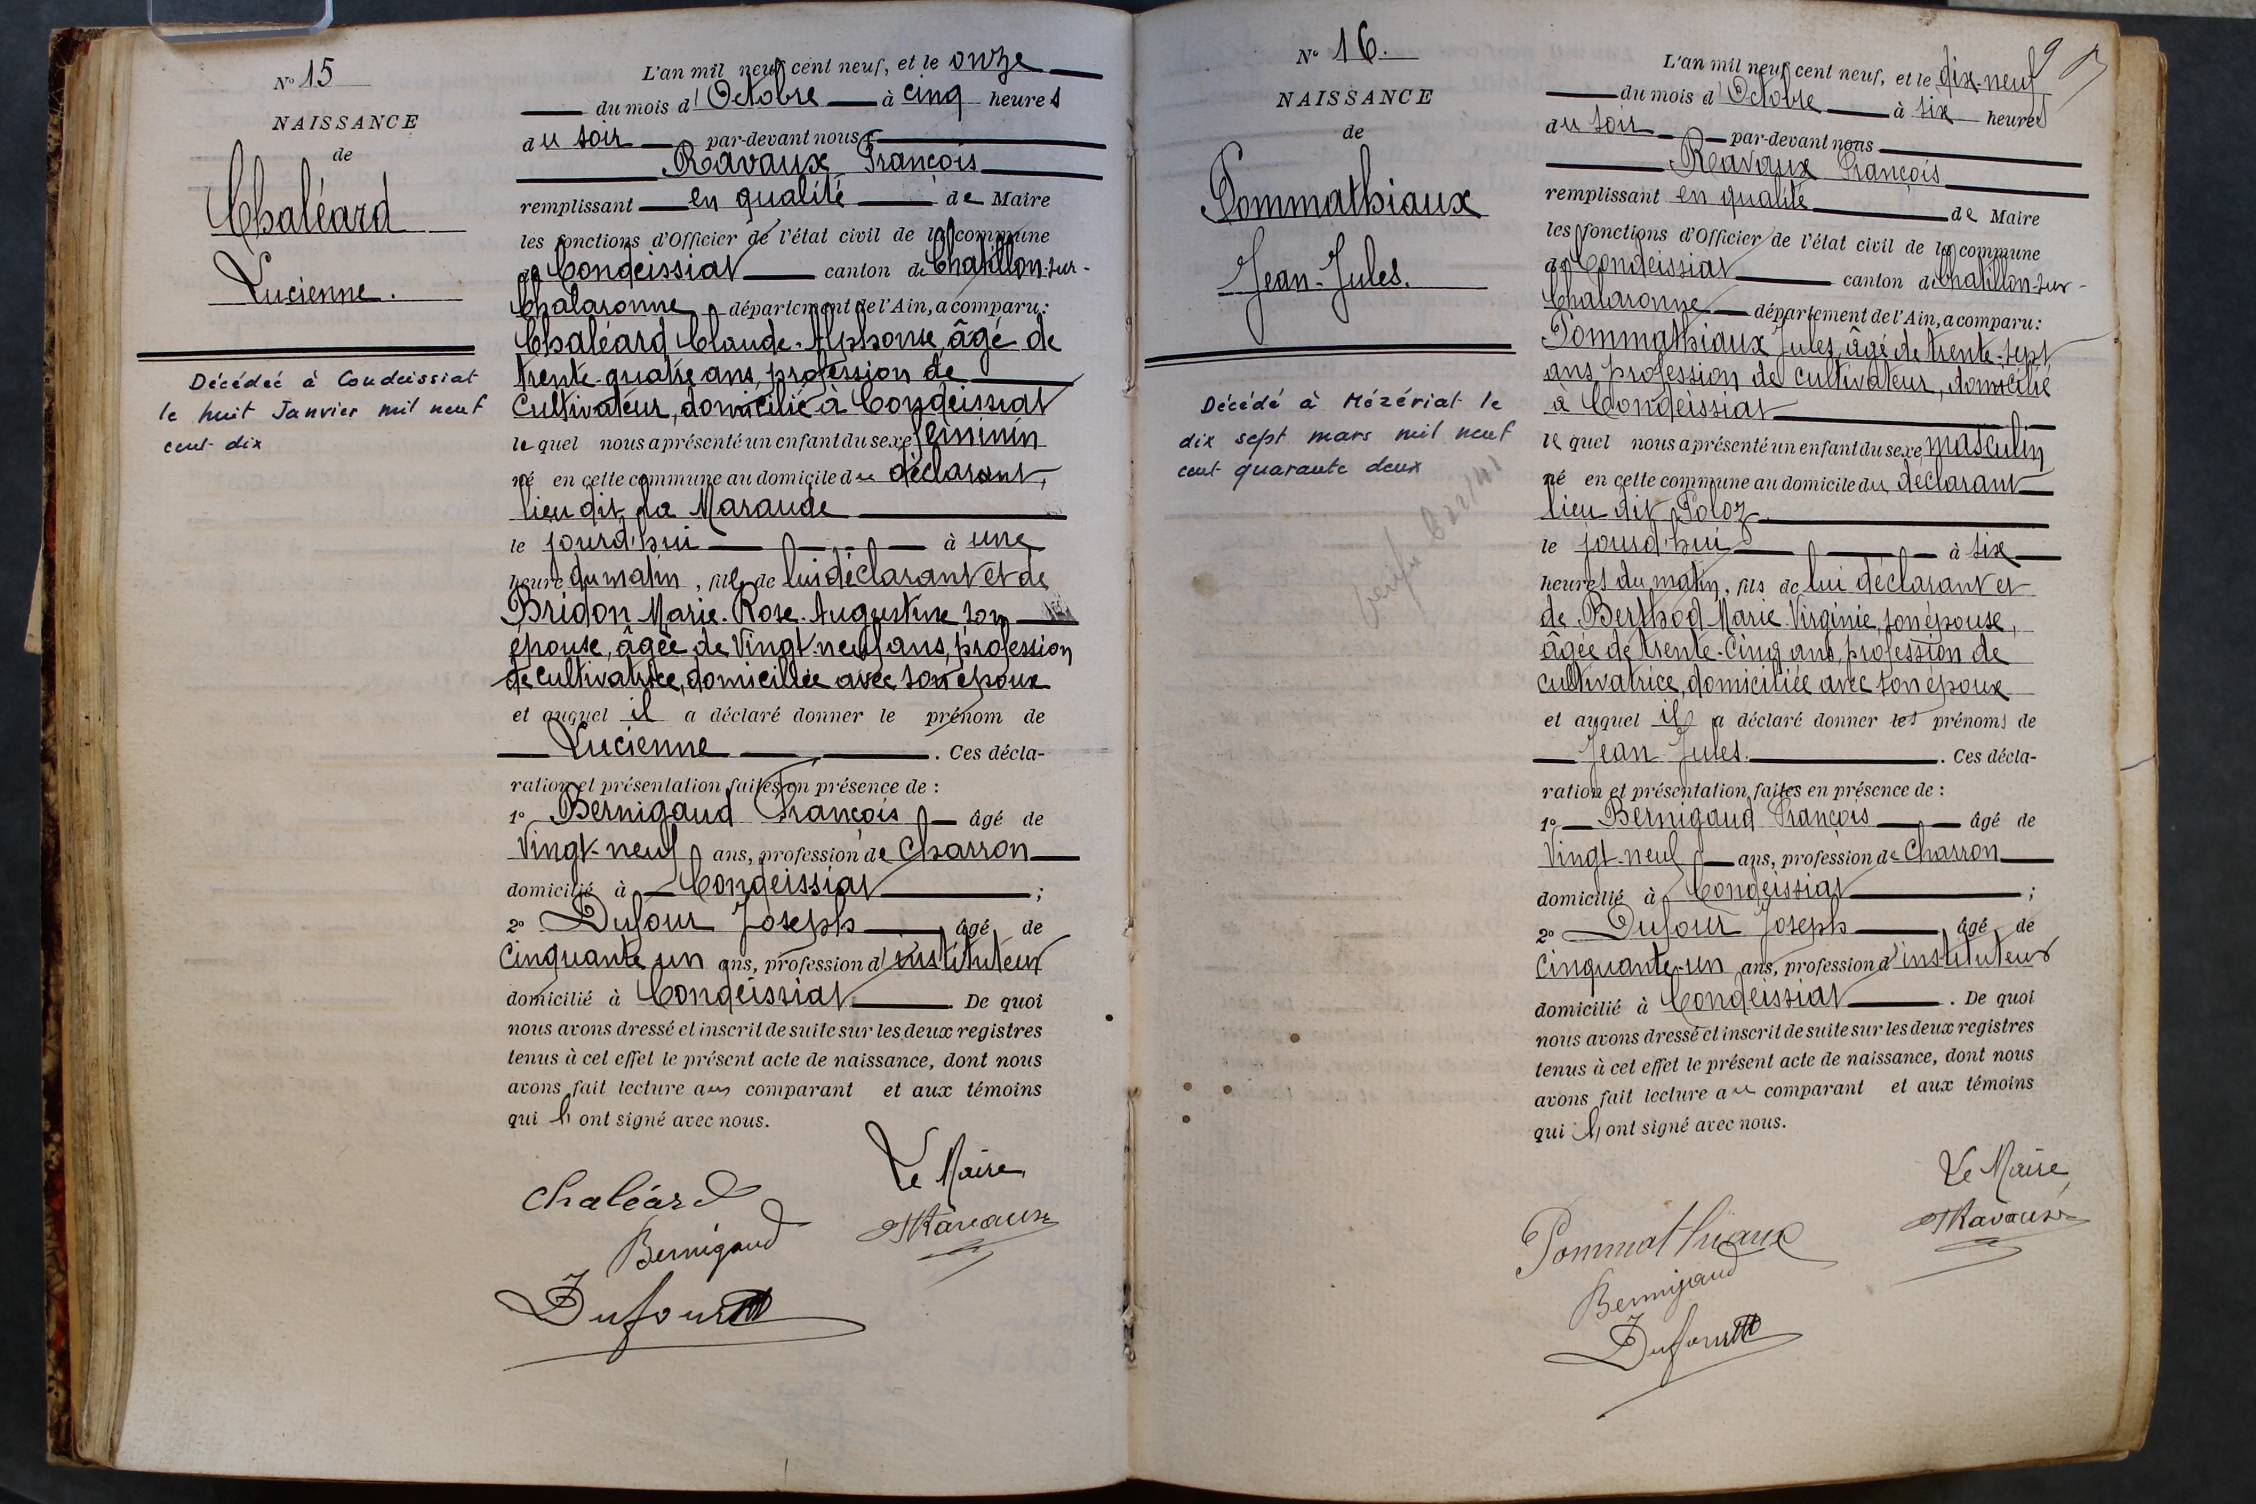 N° 15
NAISSANCE
de
Chaléard
Lucienne.
Décédée à Condeissiat
le huit Janvier mil neuf
cent dix
L'an mil neuf cent neuf, et le onze
du mois d'Octobre à cinq heures
du soir par-devant nous
Ravaux François
remplissant en qualité de Maire
les fonctions d'Officier de l'état civil de la commune
de Condeissiat canton de Chatillon-sur-
Chalaronne département de l'Ain, a comparu:
Chaléard Claude-Alphonse, âgé de
trente-quatre ans, profession de
Cultivateur, domicilié à Condeissiat
lequel nous a présenté un enfant du sexe féminin
né en cette commune au domicile du déclarant,
lieu dit la Maraude
le jourd'hui à une
heure du matin, fille de lui déclarant et de
Bridon Marie-Rose-Augustine son
épouse, âgée de Vingt-neuf ans, profession
de cultivatrice, domiciliée avec son époux
et auquel il a déclaré donner le prénom de
Lucienne. Ces décla-
ration et présentation faites en présence de :
1° Bernigaud François âgé de
Vingt-neuf ans, profession de Charron
domicilié à Condeissiat ;
2° Dufour Joseph âgé de
Cinquante un ans, profession d'instituteur
domicilié à Condeissiat De quoi
nous avons dressé et inscrit de suite sur les deux registres
tenus à cet effet le présent acte de naissance, dont nous
avons fait lecture au comparant et aux témoins
qui l'ont signé avec nous.
Le Maire,
Chaléard
Ravaux
Bernigaud
Dufour
9
N° 16.
NAISSANCE
de
Pommathiaux
Jean-Jules.
Décédé à Mézériat le
dix sept mars mil neuf
cent quarante deux
L'an mil neuf cent neuf, et le dix-neuf
du mois d'Octobre à six heures
du soir par-devant nous
Ravaux François
remplissant en qualité de Maire
les fonctions d'Officier de l'état civil de la commune
de Condeissiat canton de Chatillon-sur-
Chalaronne département de l'Ain, a comparu:
Pommathiaux Jules, âgé de trente-sept
ans, profession de cultivateur, domicilié
à Condeissiat
lequel nous a présenté un enfant du sexe masculin
né en cette commune au domicile du déclarant
lieu dit Poloz
le jourd'hui à six
heures du matin, fils de lui déclarant et
de Berthod Marie-Virginie, son épouse,
âgée de trente-cinq ans, profession de
cultivatrice, domiciliée avec son époux
et auquel il a déclaré donner les prénoms de
Jean Jules. Ces décla-
ration et présentation faites en présence de :
1° Bernigaud François âgé de
Vingt-neuf ans, profession de Charron
domicilié à Condeissiat ;
2° Dufour Joseph âgé de
Cinquante-un ans, profession d'instituteur
domicilié à Condeissiat. De quoi
nous avons dressé et inscrit de suite sur les deux registres
tenus à cet effet le présent acte de naissance, dont nous
avons fait lecture au comparant et aux témoins
qui l'ont signé avec nous.
Le Maire,
Pommathiaux
Ravaux
Bernigaud
Dufour